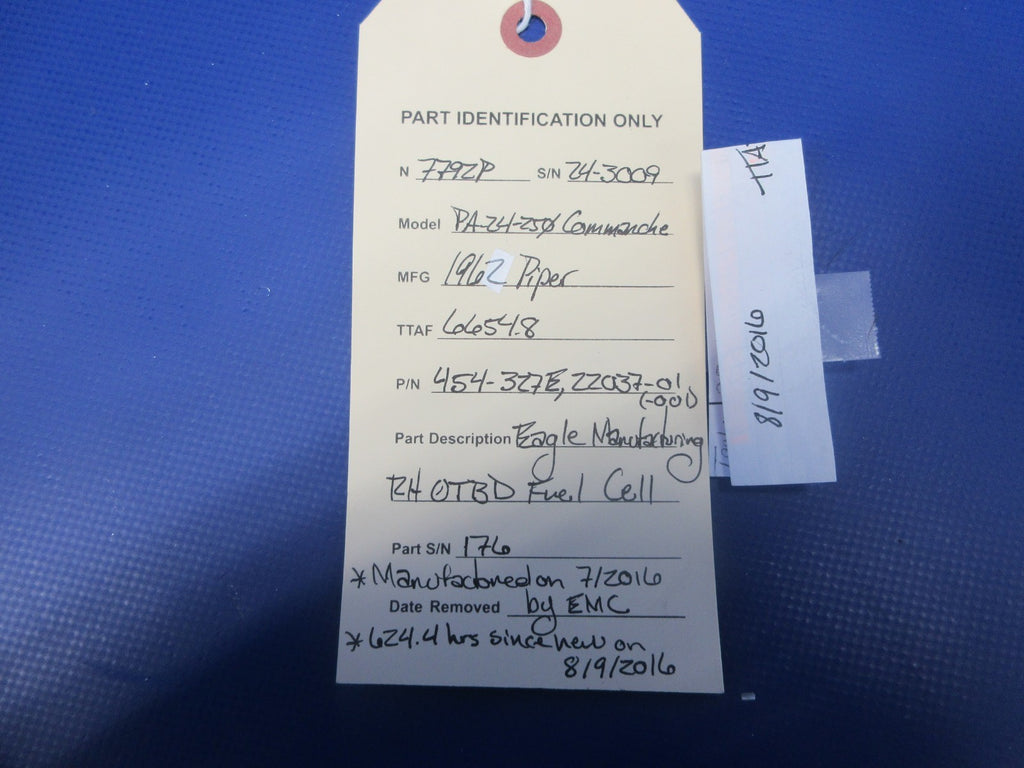 PART IDENTIFICATION ONLY
N 7792P S/N 24-3009
Model PA-24-250 Commanche
MFG 1962 Piper
TTAF 6654.8
P/N 454-327E, 22037-01
(-001)
Part Description Eagle Manufacturing
RH OTBD Fuel Cell
Part S/N 176
* Manufactured on 7/2016
Date Removed by EMC
* 624.4 hrs since new on
8/9/2016
TTA
8/9/2016